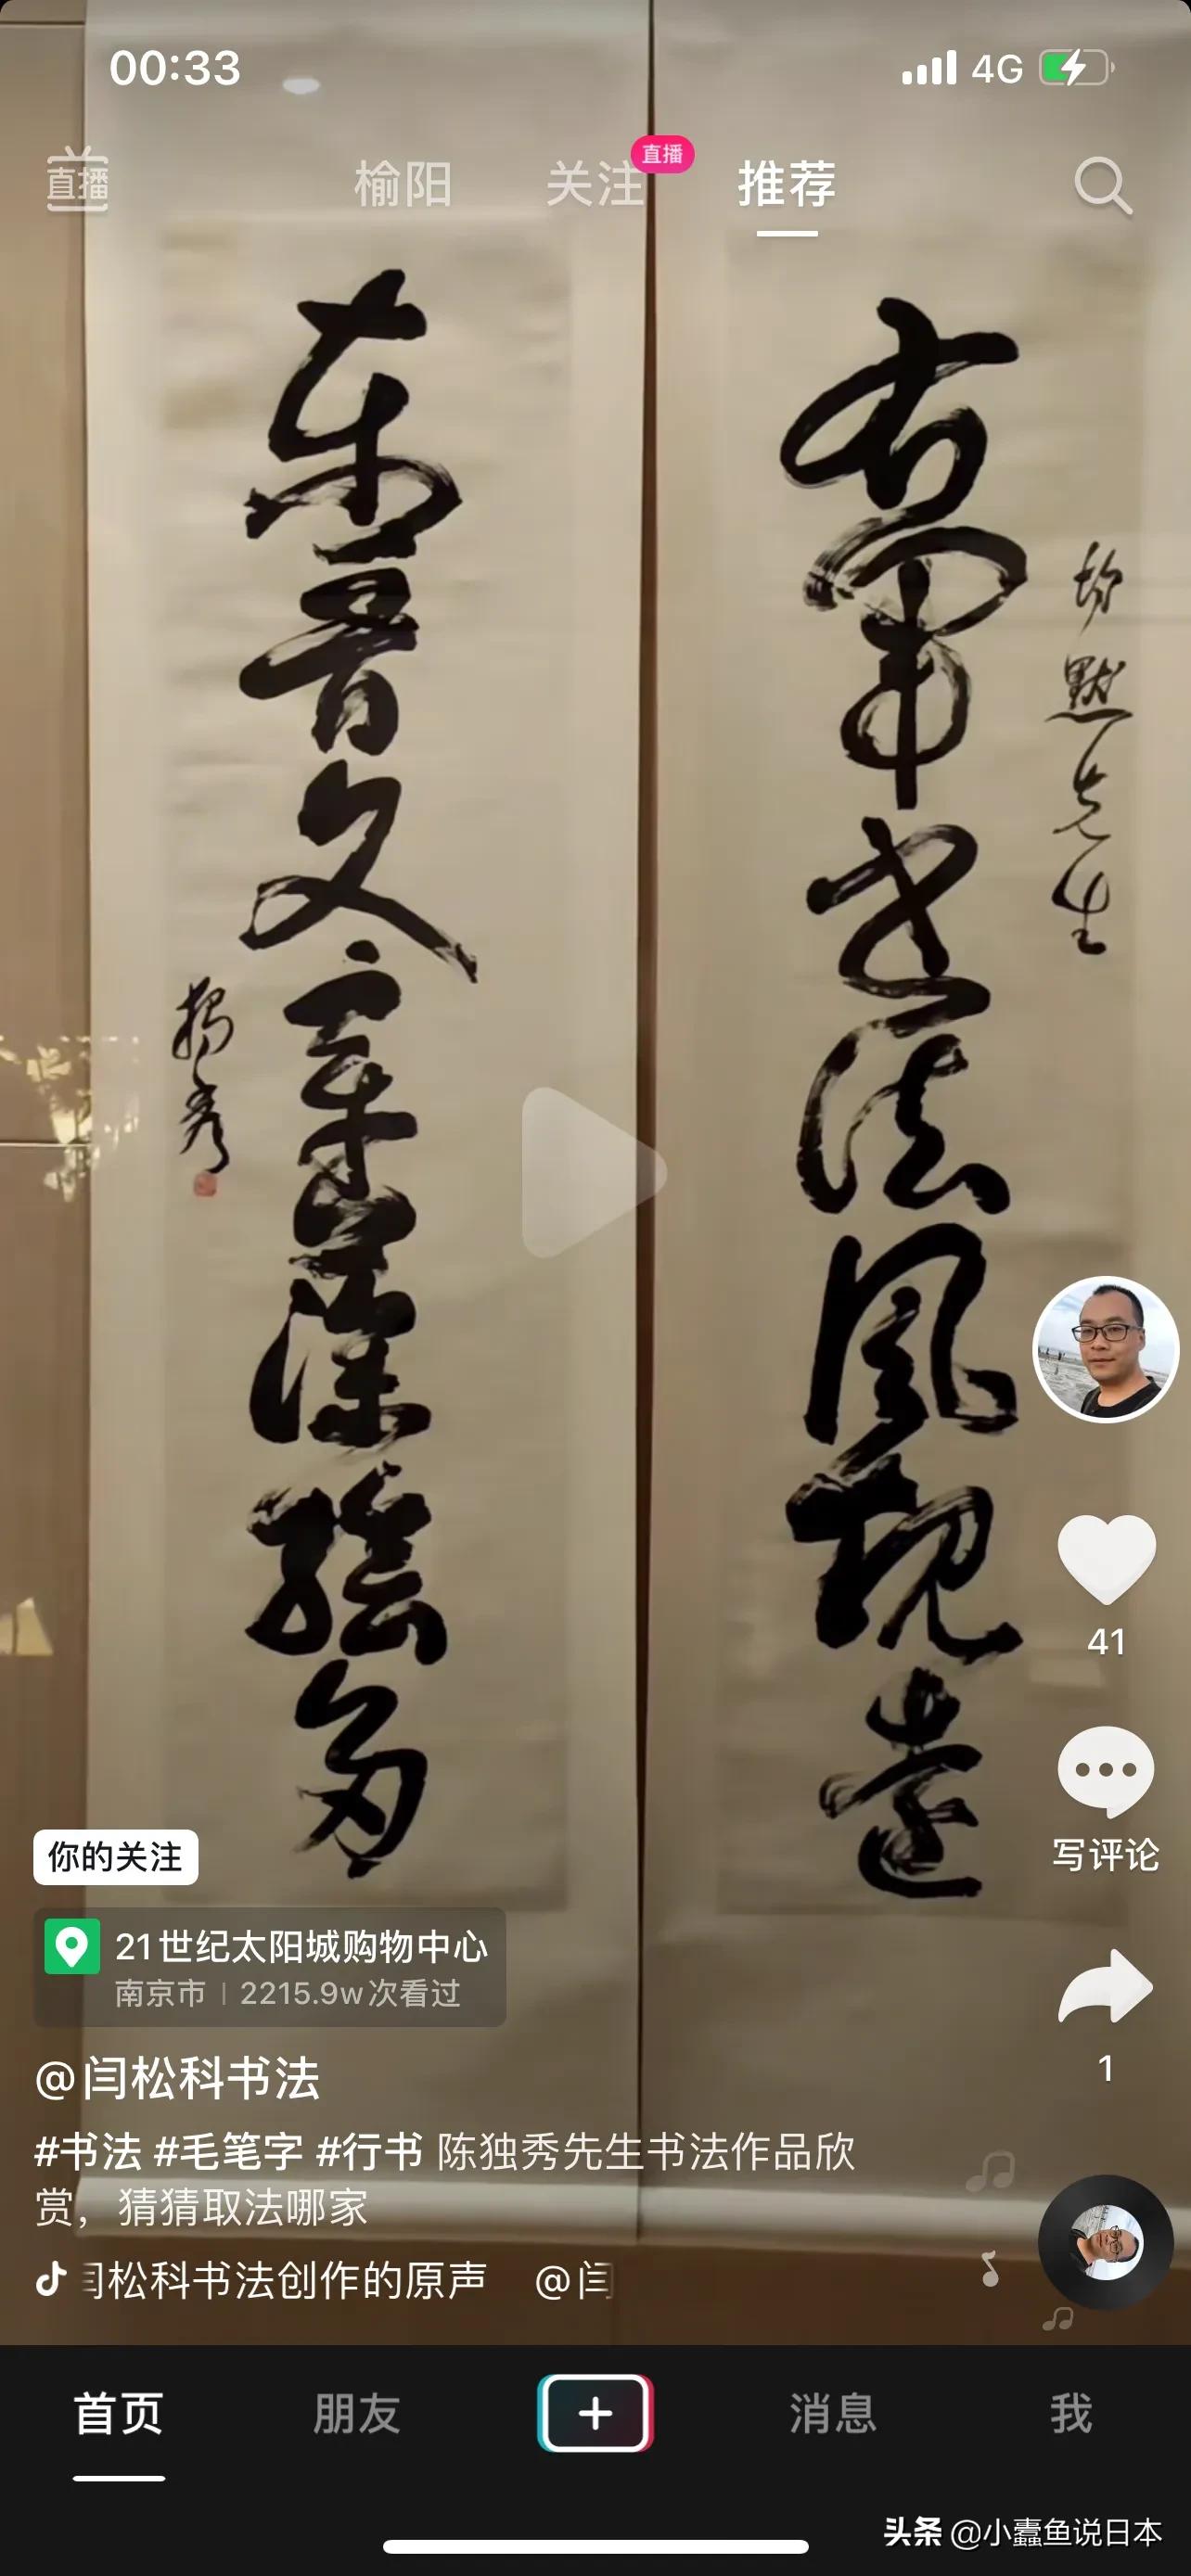 00:33
4G
直播
榆阳
关注
直播
推荐
默先生
右軍書法風規遠
東晉文章藻繪多
獨秀
41
写评论
1
你的关注
21世纪太阳城购物中心
南京市 | 2215.9w次看过
@闫松科书法
#书法 #毛笔字 #行书 陈独秀先生书法作品欣
赏，猜猜取法哪家
松科书法创作的原声 @闫
首页
朋友
消息
我
头条 @小蠹鱼说日本